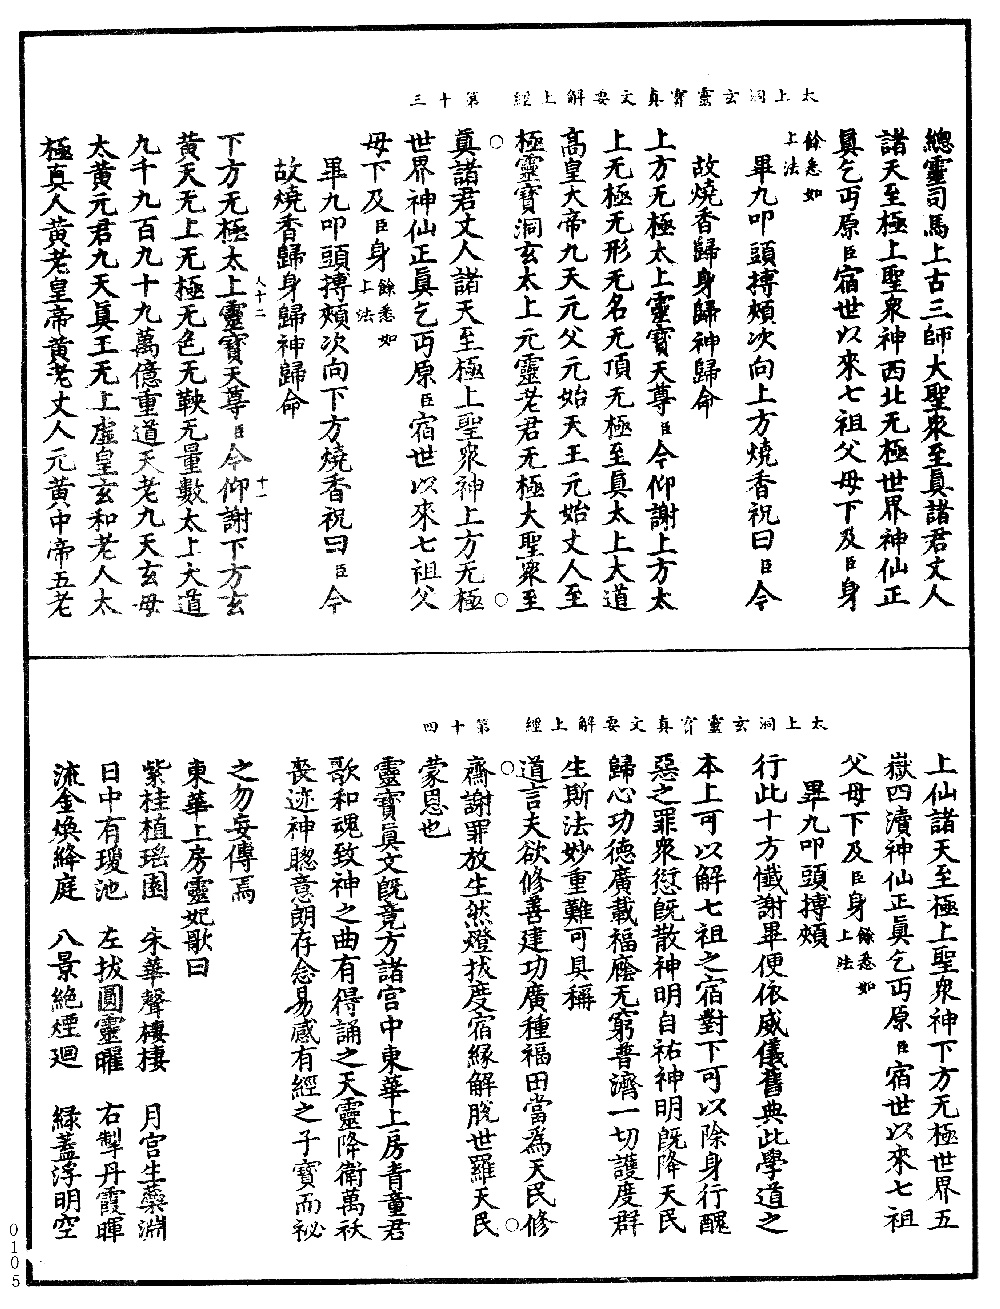 太上洞玄靈寳真文要解上經　第十三
總靈司馬上古三師大聖衆至真諸君丈人
諸天至極上聖衆神西北无極世界神仙正
真乞丐原臣宿世以來七祖父母下及臣身
餘悉如上法
畢九叩頭搏頰次向上方燒香祝曰臣今
故燒香歸身歸神歸命
上方无極太上靈寳天尊臣今仰謝上方太
上无極无形无名无頂无極至真太上大道
高皇大帝九天元父元始天王元始丈人至
極靈寳洞玄太上元靈老君无極大聖衆至
真諸君丈人諸天至極上聖衆神上方无極
世界神仙正真乞丐原臣宿世以來七祖父
母下及臣身餘悉如上法
畢九叩頭搏頰次向下方燒香祝曰臣今
故燒香歸身歸神歸命
人十二　十一
下方无極太上靈寳天尊臣今仰謝下方玄
黄天无上无極无色无鞅无量數太上大道
九千九百九十九萬億重道天老九天玄母
太黄元君九天真王无上虛皇玄和老人太
極真人黄老皇帝黄老丈人元黄中帝五老
太上洞玄靈寳真文要解上經　第十四
上仙諸天至極上聖衆神下方无極世界五
嶽四瀆神仙正真乞丐原臣宿世以來七祖
父母下及臣身餘悉如上法
畢九叩頭搏頰
行此十方懺謝畢便依威儀舊典此學道之
本上可以解七祖之宿對下可以除身行醜
惡之罪衆愆旣散神明自祐神明旣降天民
歸心功德廣載福廕无窮普濟一切護度群
生斯法妙重難可具稱
道言夫欲修善建功廣種福田當為天民修
齋謝罪放生然燈拔度宿緣解脫世羅天民
蒙恩也
靈寳真文旣竟方諸宮中東華上房青童君
歌和魂致神之曲有得誦之天靈降衛萬祅
喪迹神聰意朗存念易感有經之子寳而祕
之勿妄傳焉
東華上房靈妃歌曰
紫桂植瑤園　朱華聲棲棲　月宮生蘂淵
日中有瓊池　左拔圓靈曜　右掣丹霞暉
流金煥絳庭　八景絕煙迴　緑蓋浮明空
0105